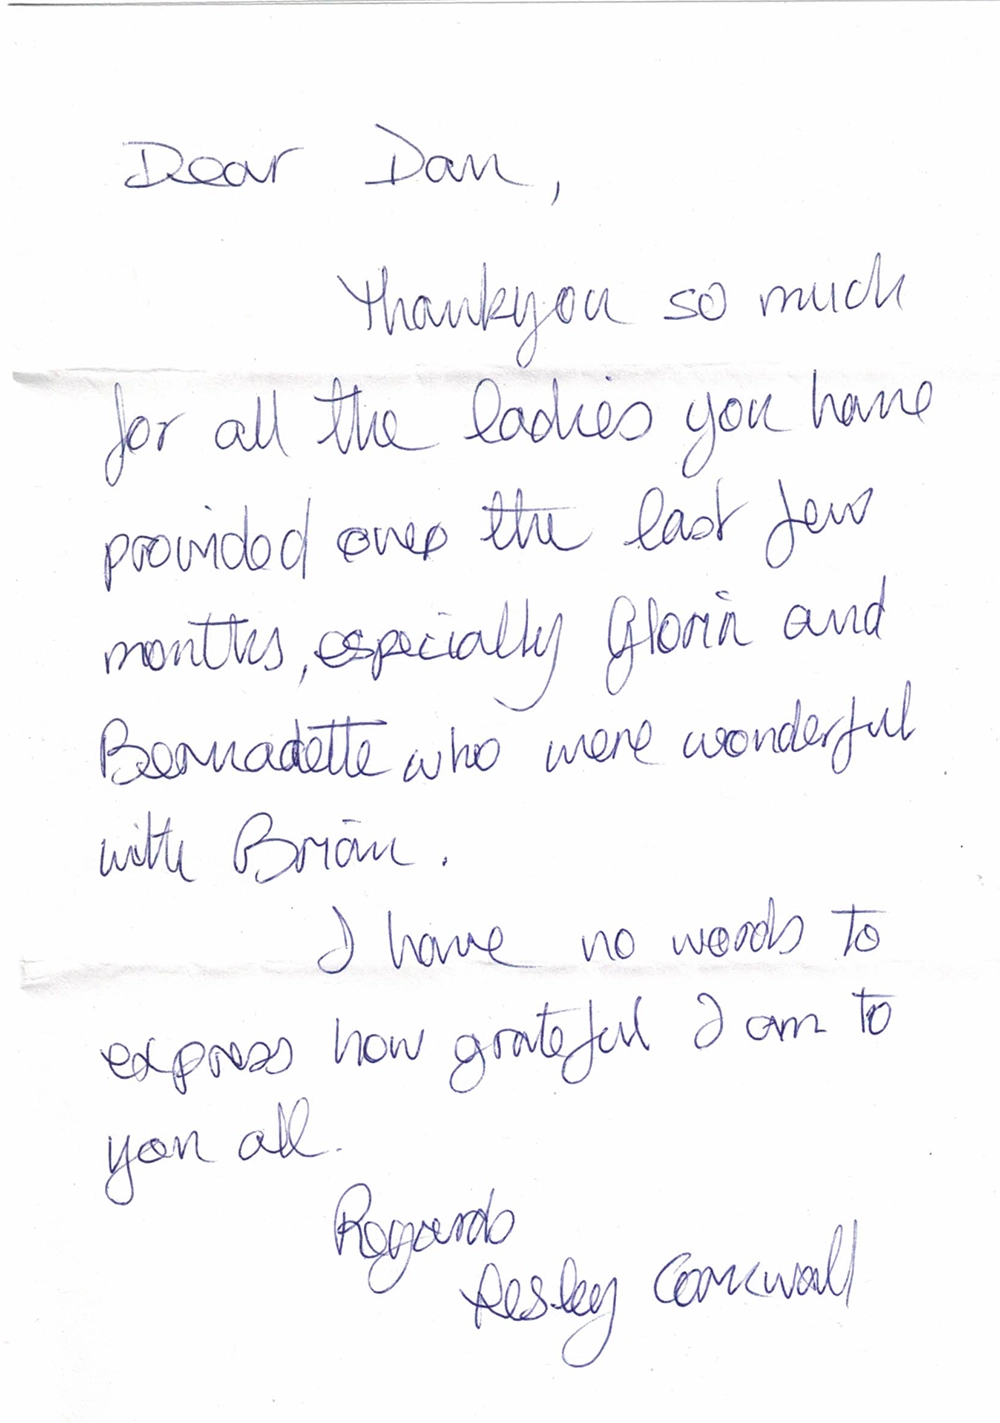 Dear Dan,
Thankyou so much
for all the ladies you have
provided over the last few
months, especially Gloria and
Bernadette who were wonderful
with Brian.
I have no words to
express how grateful I am to
you all.
Regards
Lesley